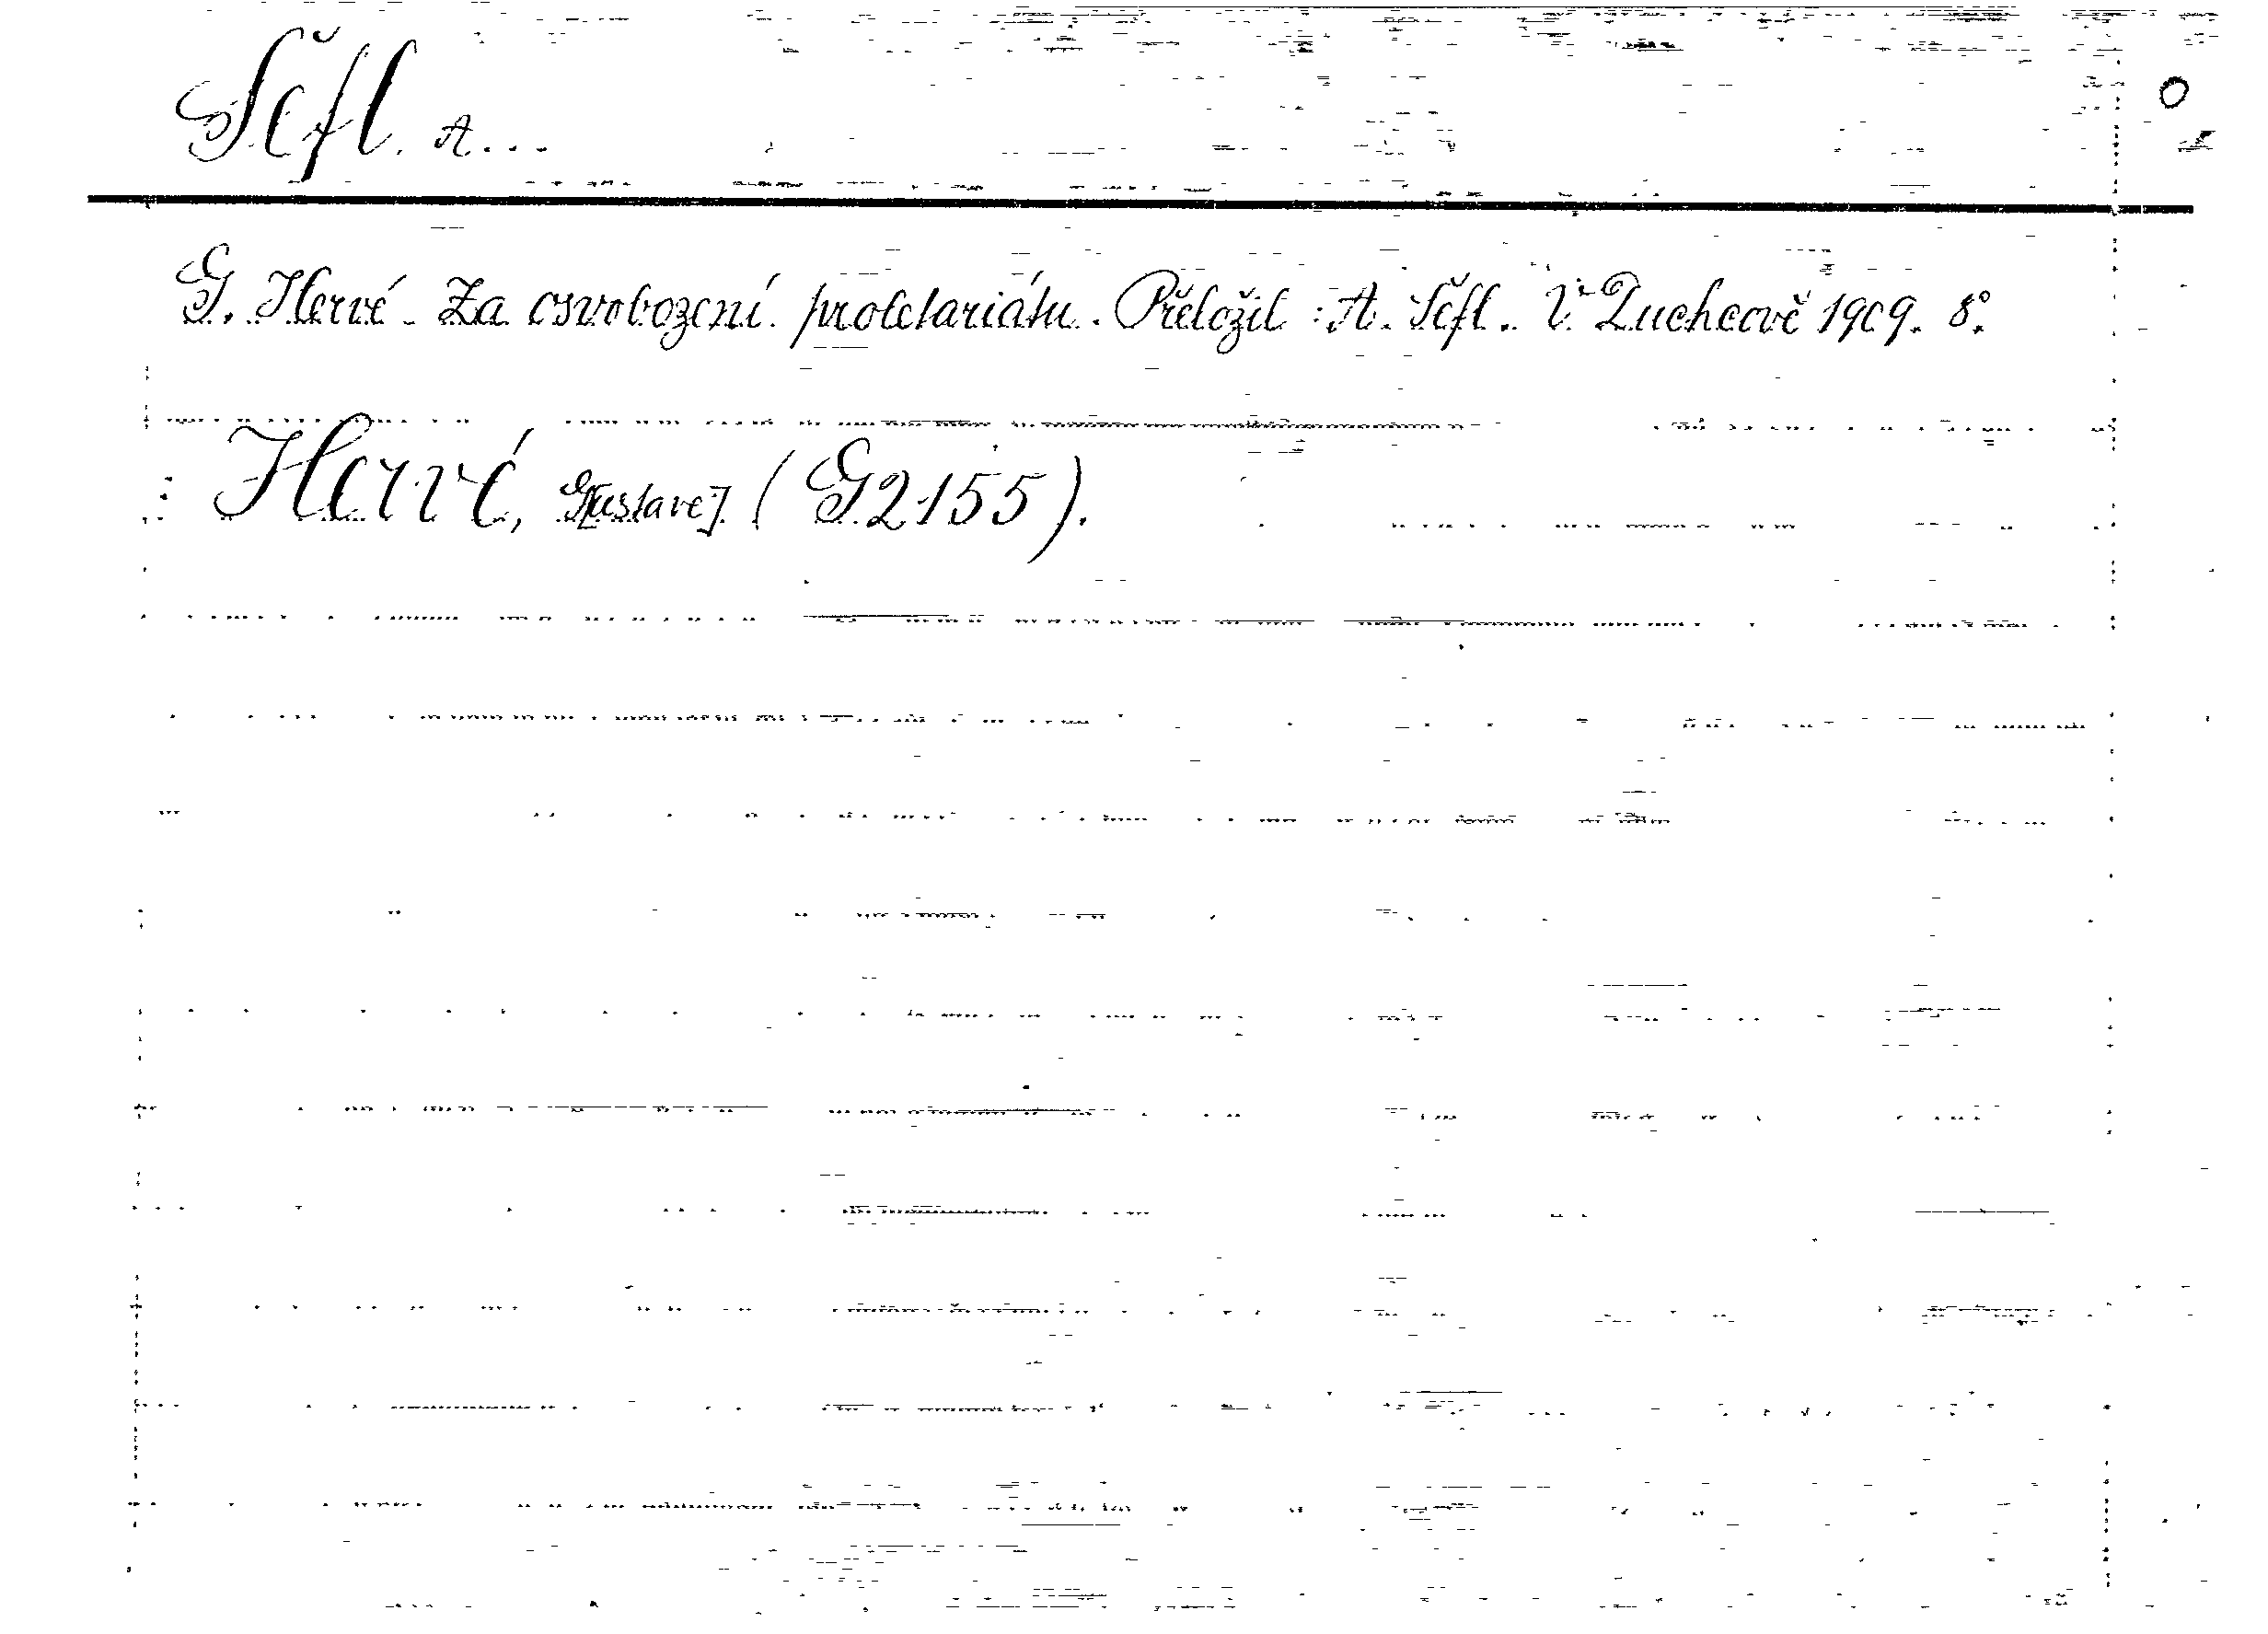 Šefl. A...
G. Hervé - Za osvobození proletariátu. Přeložil: A. Šefl. V Duchcově 1909. 8°.
Hervé, G[ustave] (G2155).